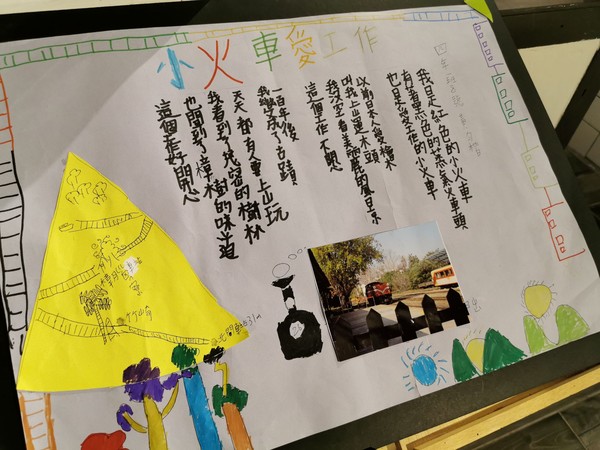 小火車愛工作
我是紅色的小火車
有著黑色的蒸氣火車頭
也是愛工作的小火車
以前日本人愛檜木
叫我上山運木頭
我沒空看美麗的風景
這個工作不開心
一百年後
我變成了古蹟
天天都有人坐上山玩
我看到了茂密的樹林
也聞到了樟樹的味道
這個工作好開心